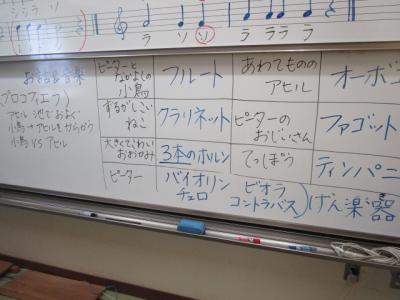 シ シ ラ ソ
ラ ソ ソ
ラ ララ ラ
プロコフィエフ)
アヒル 池でおよぐ
小鳥→アヒルをからかう
小鳥 VS アヒル
ピーターと
なかよしの
小鳥
フルート
あわてものの
アヒル
オーボエ
ずるがしこい
ねこ
クラリネット
ピーターの
おじいさん
ファゴット
大きくてこわい
おおかみ
3本のホルン
てっぽう
ティンパニ
ピーター
バイオリン
チェロ
ビオラ
コントラバス
げん楽器